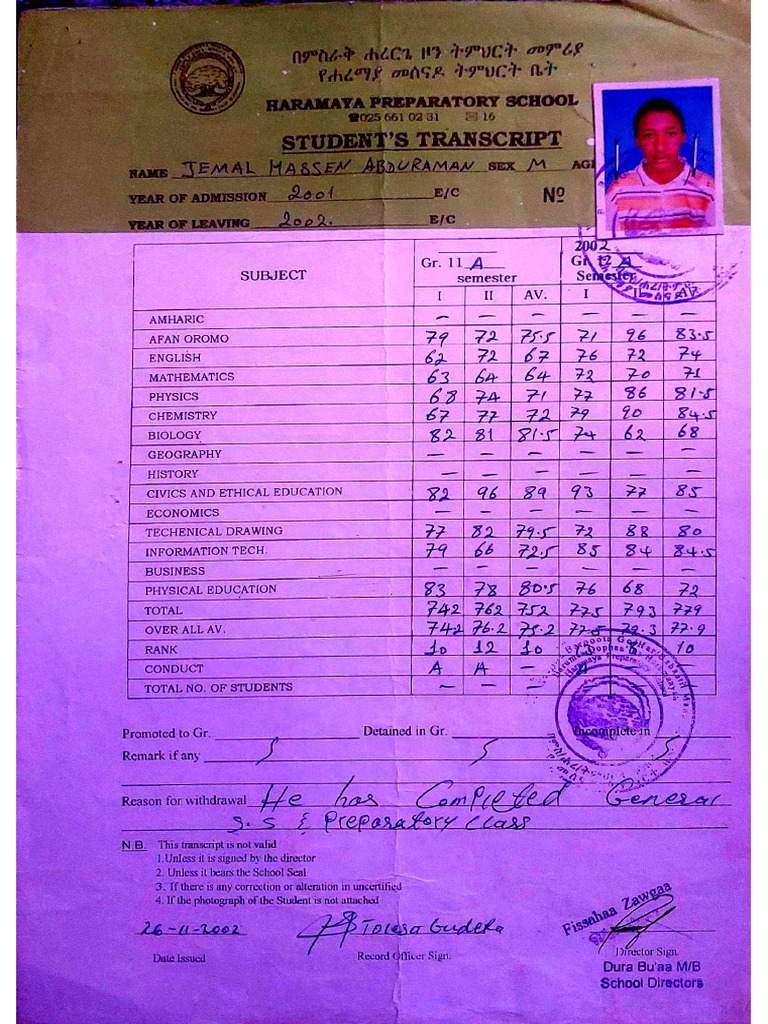 በምስራቅ ሐረርጌ ዞን ትምህርት መምሪያ
የሐረማያ መሰናዶ ትምህርት ቤት
HARAMAYA PREPARATORY SCHOOL
☎025 661 02 31 ✉ 16
STUDENT'S TRANSCRIPT
NAME JEMAL HASSEN ABDURAMAN SEX M
YEAR OF ADMISSION 2001 E/C Nº
YEAR OF LEAVING 2002. E/C
SUBJECT Gr. 11 A semester 2002 Gr. 12 A Semester
I II AV. I
AMHARIC — — — — — —
AFAN OROMO 79 72 75.5 71 96 83.5
ENGLISH 62 72 67 76 72 74
MATHEMATICS 63 64 64 72 70 71
PHYSICS 68 74 71 77 86 81.5
CHEMISTRY 67 77 72 79 90 84.5
BIOLOGY 82 81 81.5 74 62 68
GEOGRAPHY — — — — — —
HISTORY — — — — —
CIVICS AND ETHICAL EDUCATION 82 96 89 93 77 85
ECONOMICS — — — — — —
TECHENICAL DRAWING 77 82 79.5 72 88 80
INFORMATION TECH. 79 66 72.5 85 84 84.5
BUSINESS — — — — — —
PHYSICAL EDUCATION 83 78 80.5 76 68 72
TOTAL 742 762 752 775 793 779
OVER ALL AV. 742 76.2 75.2 77.5 79.3 77.9
RANK 10 12 10 10
CONDUCT A A —
TOTAL NO. OF STUDENTS — — —
Promoted to Gr. Detained in Gr. Incomplete in
Remark if any
Reason for withdrawal He has Completed General
S.S & Preparatory class
N.B. This transcript is not valid
1.Unless it is signed by the director
2. Unless it bears the School Seal
3. If there is any correction or alteration in uncertified
4. If the photograph of the Student is not attached
26-11-2002 Tolosa Gudeta
Fissehaa Zawgaa
Date Issued Record Officer Sign. Director Sign.
Dura Bu'aa M/B
School Directors